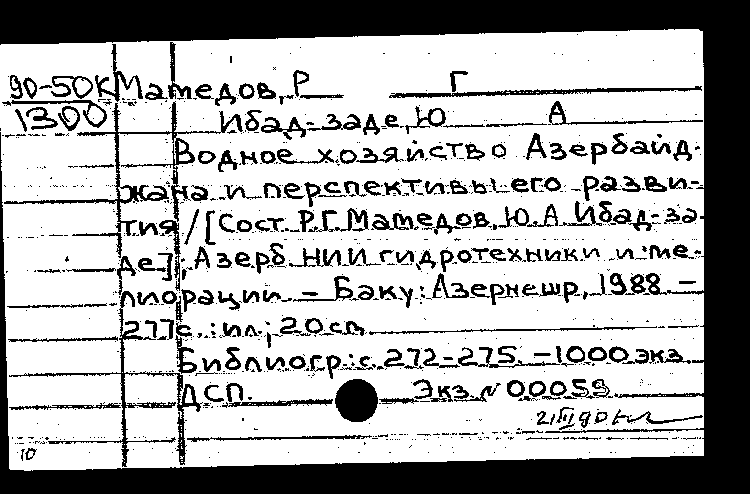 90-50К Мамедов, Р Г
1300 Ибад-заде, Ю А
Водное хозяйство Азербайд-
жана и перспективы его разви-
тия / [Сост. Р.Г. Мамедов, Ю.А Ибад-за-
де]; Азерб. НИИ гидротехники и ме-
лиорации – Баку: Азернешр, 1988. –
277с.: ил.; 20см
Библиогр: с. 272-275. – 1000 экз
ДСП. Экз № 00059
21 III 90
10